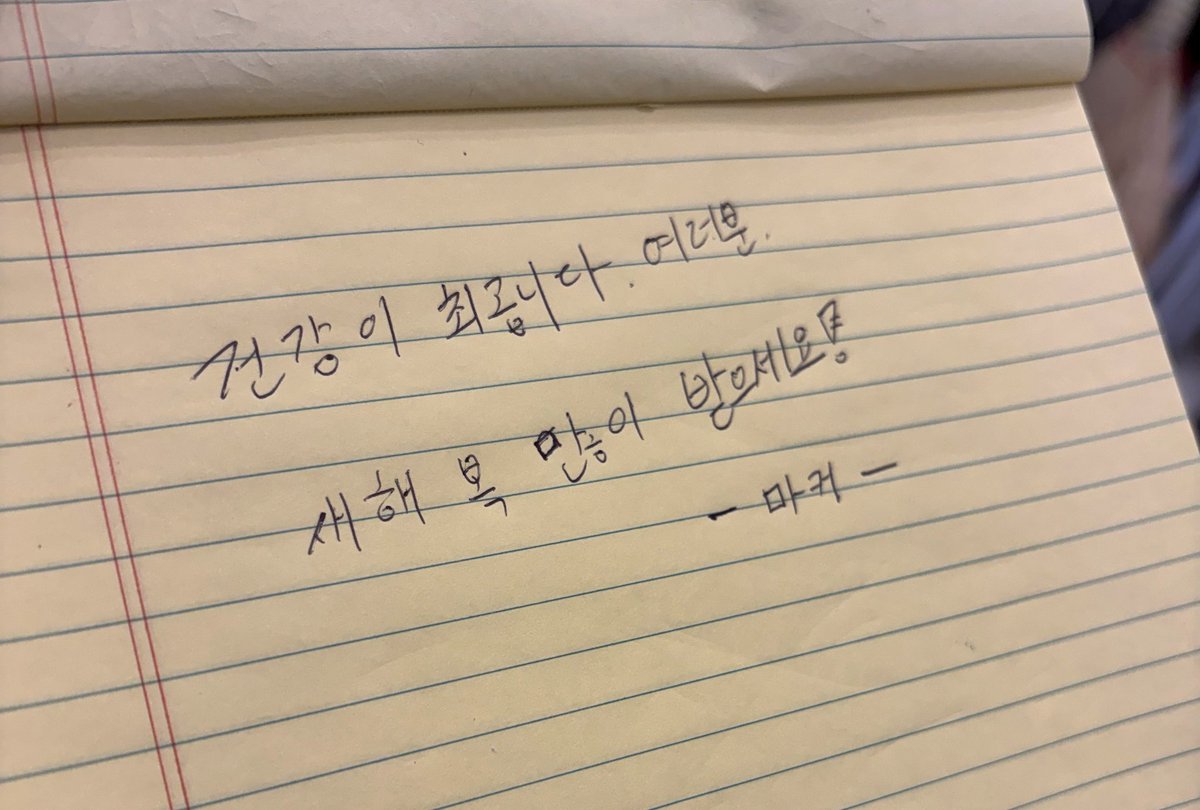 건강이 최곱니다. 여러분.
새해 복 많이 받으세요!
- 마커 -